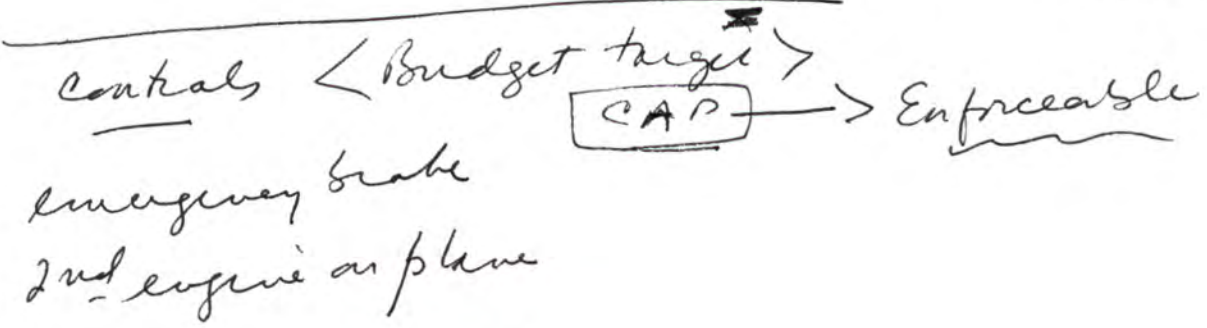 controls < Budget target >
CAP —> Enforceable
emergency brake
2nd engine on plane